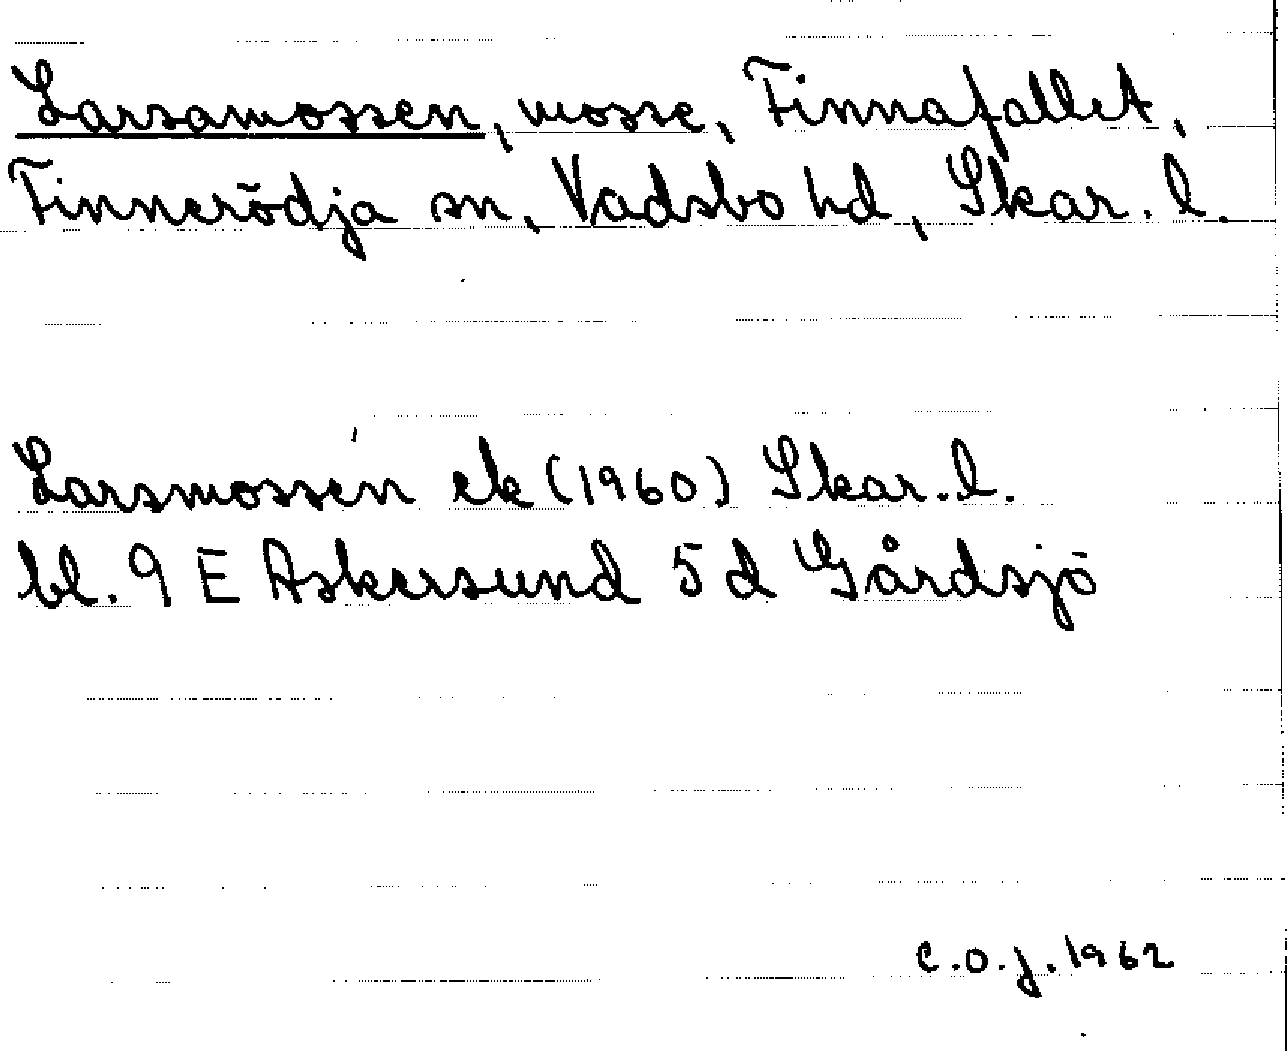 Larsamossen, mosse, Finnafallet,
Finnerödja sn, Vadsbo hd, Skar. l.
Larsmossen ek (1960) Skar. l.
bl. 9 E Askersund 5 d Gårdsjö
C.O.J. 1962